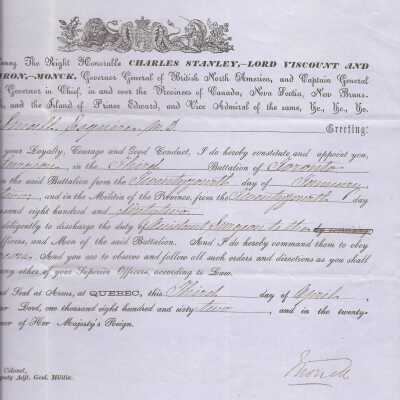 The Right Honorable CHARLES STANLEY,—LORD VISCOUNT AND
RON,—MONCK, Governor General of British North America, and Captain General
Governor in Chief, in and over the Provinces of Canada, Nova Scotia, New Bruns-
and the Island of Prince Edward, and Vice Admiral of the same, &c., &c., &c.
Esquire, M.D. Greeting:
your Loyalty, Courage and Good Conduct, I do hereby constitute and appoint you,
in the Third Battalion of Toronto
in the said Battalion from the day of January
and in the Militia of the Province, from the day
thousand eight hundred and sixty two
diligently to discharge the duty of Assistant Surgeon to the
Officers, and Men of the said Battalion. And I do hereby command them to obey
And you are to observe and follow all such orders and directions as you shall
any other of your Superior Officers, according to Law.
Seal at Arms, at QUEBEC, this Third day of April,
Lord, one thousand eight hundred and sixty two, and in the twenty-
of Her Majesty's Reign.
Monck
Colonel,
Deputy Adjt. Genl. Militia.